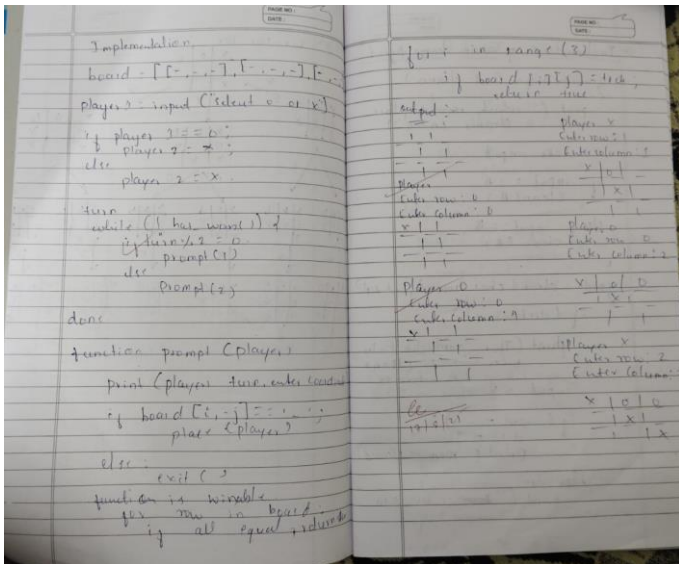 PAGE NO.:
DATE:
Implementation
board = [[-,-,-],[-,-,-],[-,-
player 1 = input ("select 0 or x")
if player 1 == 0 :
player 2 = x ;
else
player 2 = x
turn
while (! has won()) {
if turn % 2 = 0
prompt (1)
else
prompt (2)
done
function prompt (player)
print (player turn, enter
if board [i, j] ==
place (player)
else :
exit ( )
function is winable
for row in board :
if all equal,
PAGE NO.:
DATE:
for i in range (3)
if board [i][j] =
return true
output :
player
Enter row : 0
Enter column : 0
x | |
player 0
Enter row : 0
Enter column : 1
x | |
player x
Enter row : 1
Enter column : 1
x | 0 |
| x |
player 0
Enter row 0
Enter column : 2
x | 0 | 0
| x |
player x
Enter row : 2
Enter column :
x | 0 | 0
| x |
| | x